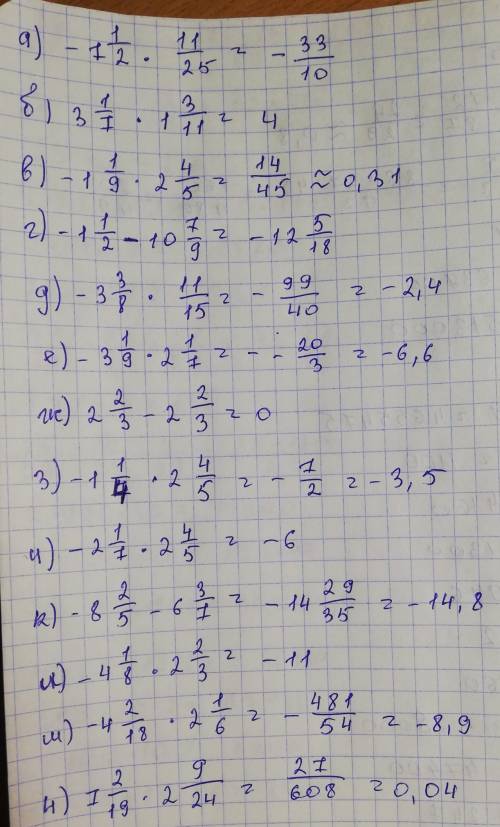 а) -7 1/2 · 11/25 = - 33/10
б) 3 1/7 · 1 3/11 = 4
в) -1 1/9 · 2 4/5 = 14/45 ≈ 0,31
г) -1 1/2 - 10 7/9 = -12 5/18
д) -3 3/8 · 11/15 = - 99/40 = -2,4
е) -3 1/9 · 2 1/7 = - - 20/3 = -6,6
ж) 2 2/3 - 2 2/3 = 0
з) -1 1/4 · 2 4/5 = - 7/2 = -3,5
и) -2 1/7 · 2 4/5 = -6
к) -8 2/5 - 6 3/7 = -14 29/35 = -14,8
л) -4 1/8 · 2 2/3 = -11
м) -4 2/18 · 2 1/6 = - 481/54 = -8,9
н) 7 2/19 · 2 9/24 = 27/608 = 0,04